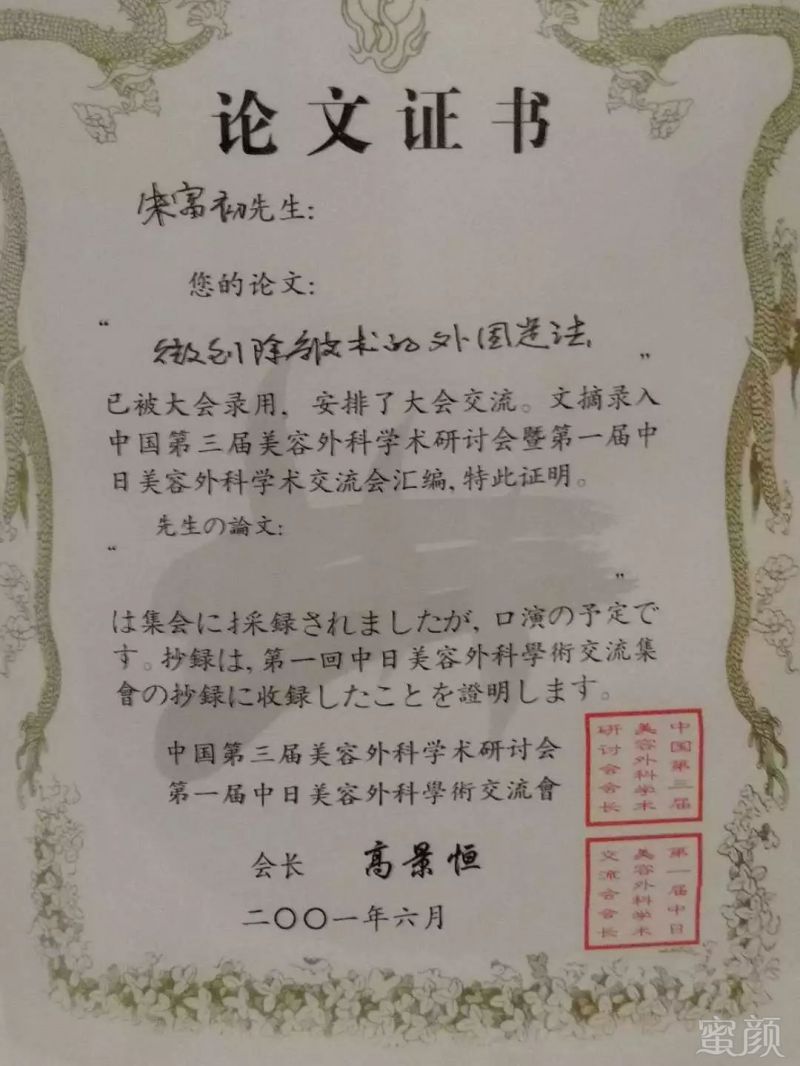 论文证书
宋富初先生：
您的论文：
“
微创除皱术的外固定法
”
已被大会录用，安排了大会交流。文摘录入
中国第三届美容外科学术研讨会暨第一届中
日美容外科学术交流会汇编，特此证明。
先生の論文：
“
”
は集会に採録されましたが，口演の予定で
す。抄録は，第一回中日美容外科學術交流集
會の抄録に收録したことを證明します。
中国第三届美容外科学术研讨会
第一届中日美容外科學術交流會
中国第三届
美容外科学术
研讨会会长
会长 高景恒
二〇〇一年六月
第一届中日
美容外科学术
交流会会长
蜜颜